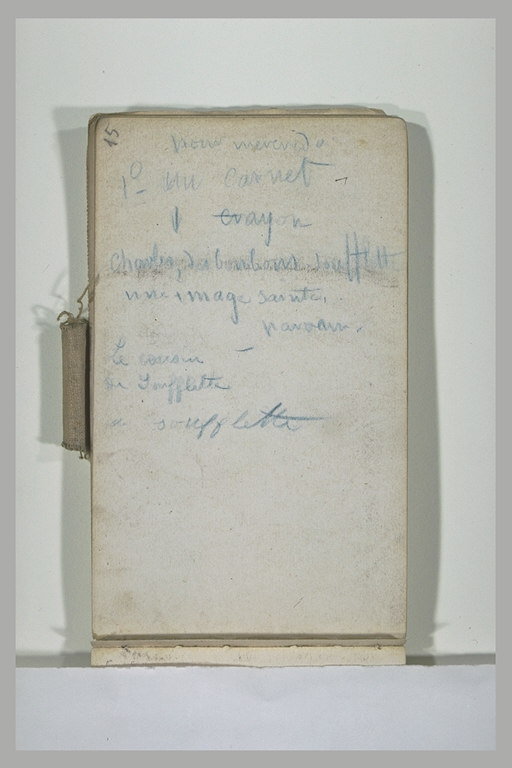 15
pour mercredi
1º un carnet
1 crayon
Charles, des bonbons, Soufflette
une image sainte,
parrain.
Le cousin
de Soufflette
a soufflette